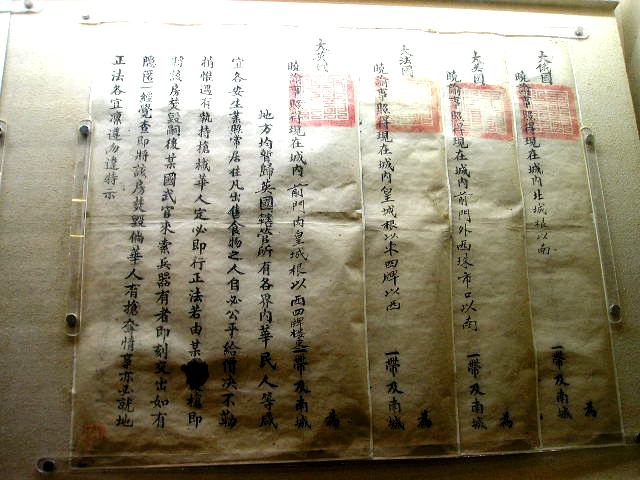 國 為
曉諭事照得現在城內北城根以南 一帶及南城
大美國 為
曉諭事照得現在城內前門外西珠市口以南 一帶及南城
大法國 為
曉諭事照得現在城內皇城根以東四牌以西 一帶及南城
大英國 為
曉諭事照得現在城內前門內皇城根以西四牌樓東一帶及南城
地方均暫歸英國轄管所有各界內華民人等咸
宜各安生業照常居住凡出售食物之人自必公平給價决不勒
捐惟遇有執持槍械華人定必即行正法若由某槍即
將該房焚毀嗣後某國武官來索兵器有者即刻交出如有
隱匿一經覺查即將該房焚毀倘華人有搶奪情事亦必就地
正法各宜凜遵勿違特示